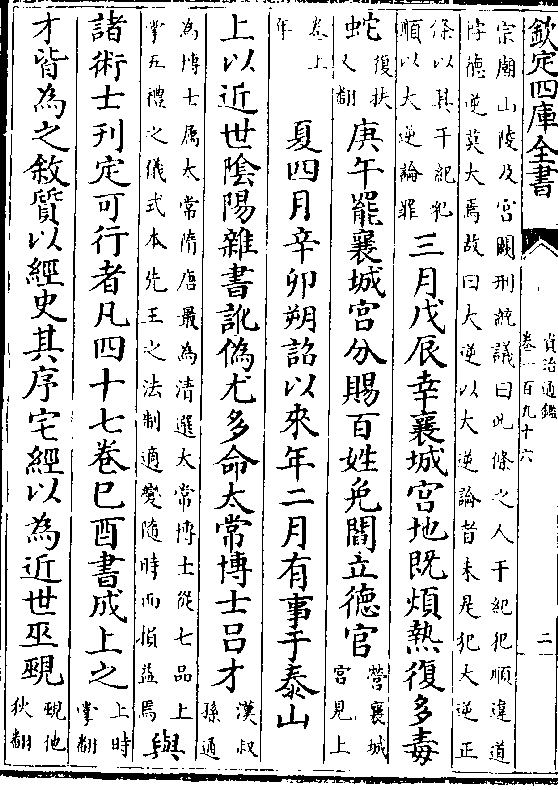 欽定四庫全書
資治通鑑
卷一百九十六
二
宗廟山陵及宮闕刑統議曰此條之人干紀犯順違道
悖德逆莫大焉故曰大逆以大逆論者未是犯大逆正
條以其干紀犯
順以大逆論罪
三月戊辰幸襄城宮地既煩熱復多毒
蛇
復扶
又翻
庚午罷襄城宮分賜百姓免閻立德官
營襄城
宮見上
卷上
年
夏四月辛卯朔詔以來年二月有事于泰山
上以近世陰陽雜書訛偽尤多命太常博士呂才
漢叔
孫通
為博士屬太常隋唐最為清選太常博士從七品上
掌五禮之儀式本先王之法制適變隨時而損益焉
與
諸術士刊定可行者凡四十七巻巳酉書成上之
上時
掌翻
才皆為之敘質以經史其序宅經以為近世巫覡
覡他
狄翻